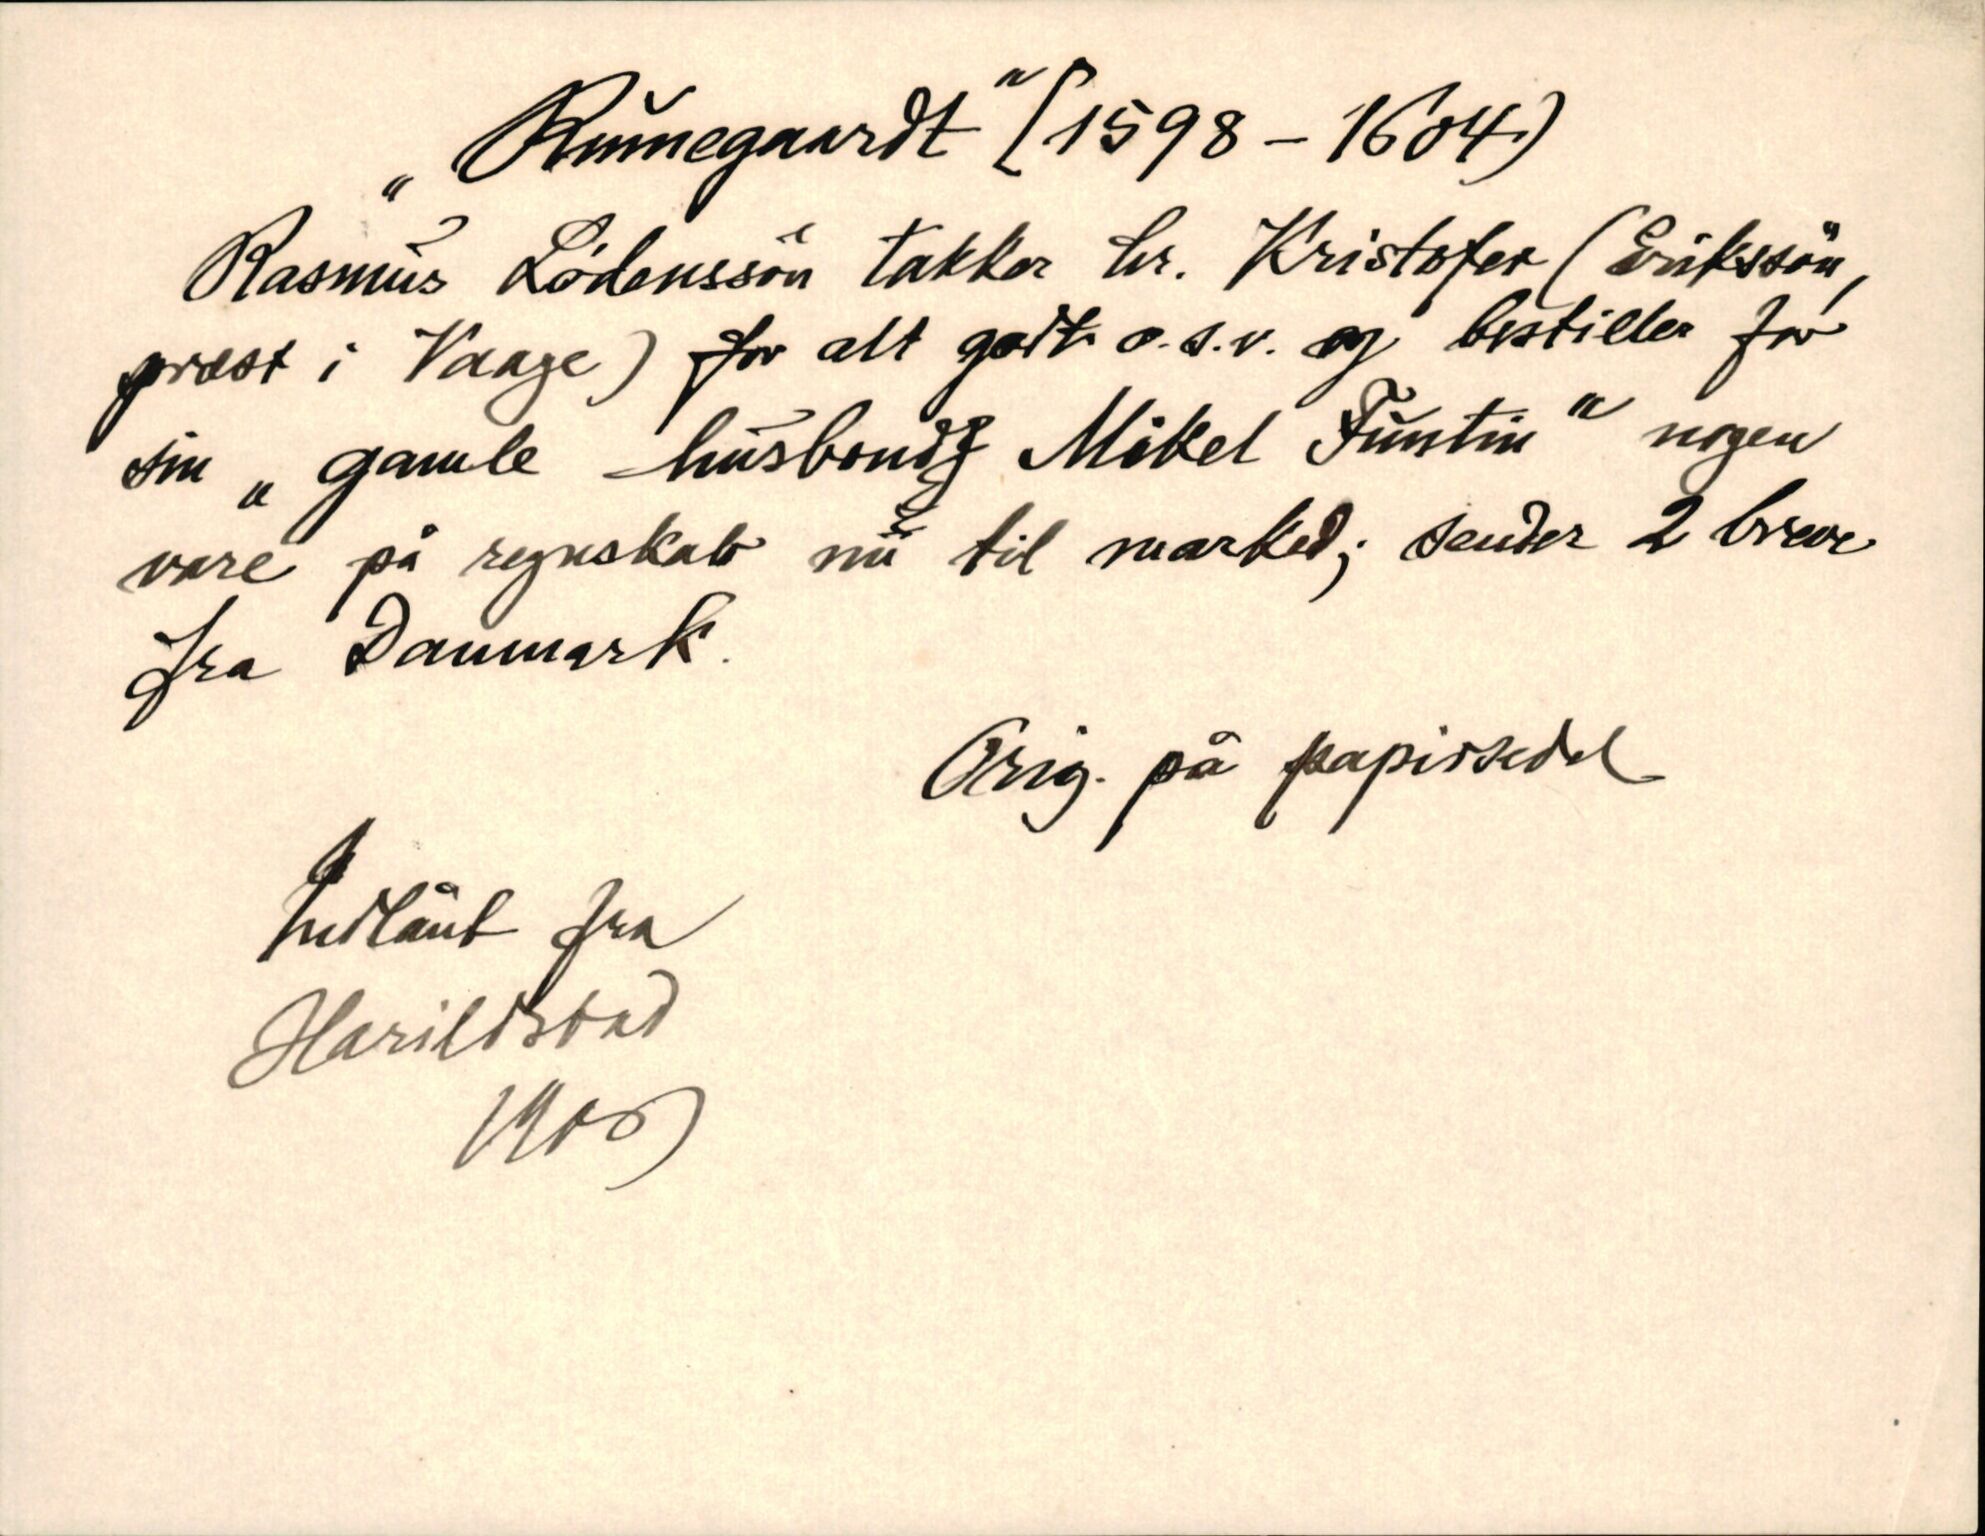 „Runegaardt“ [1598 – 1604)
Rasmus Lodenssön takker hr. Kristofer (Erikssön,
præst i Vaage) for alt godt o.s.v. og bestiller for
sin „gamle husbond Mikel Funtin“ nogen
vare på regnskab nu til marked; sender 2 breve
fra Danmark.
Orig. på papirsedel
Indlånt fra
Harildstad